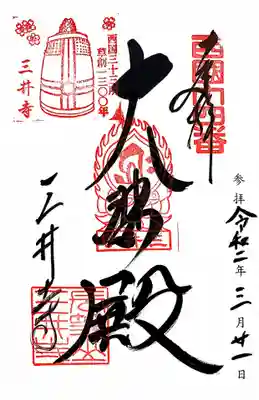 奉拝
西國十四番
大悲殿
三井寺
参拝 令和二年 三月廿一日
西国三十三所
草創一三〇〇年
三井寺